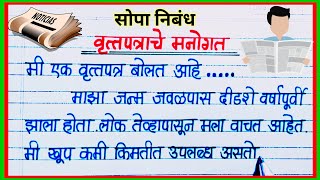 NOTICIAS
सोपा निबंध
वृत्तपत्राचे मनोगत
मी एक वृत्तपत्र बोलत आहे .....
माझा जन्म जवळपास दीडशे वर्षापूर्वी
झाला होता. लोक तेव्हापासून मला वाचत आहेत.
मी खूप कमी किमतीत उपलब्ध असतो